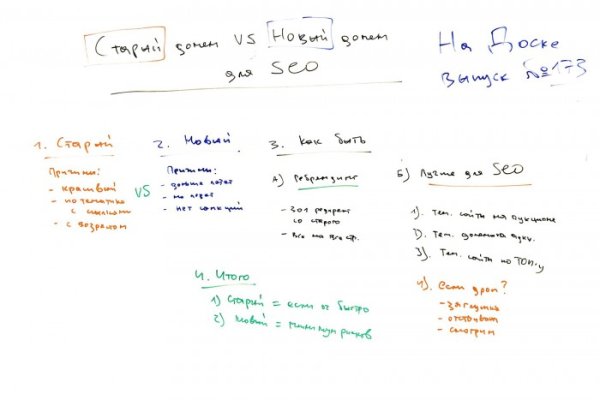 Старый домен VS Новый домен
для SEO
На Доске
выпуск №173
1. Старый
Причины:
- красивый
- по тематике
с ссылками
- с возрастом
VS
2. Новый
Причины:
- дольше
- не
- нет санкций
3. Как быть
А) Ребрендинг
- 301 редирект
со старого
- Все на все стр.
Б) Лучше для SEO
1). Тем. сайты на аукционе
2). Тем. домены
3). Тем. сайты по ТОП-у
4). если дроп?
- заглушка
- отстаиваем
- смотрим
4. Итого
1) Старый = если ок быстро
2) Новый = минимум рисков